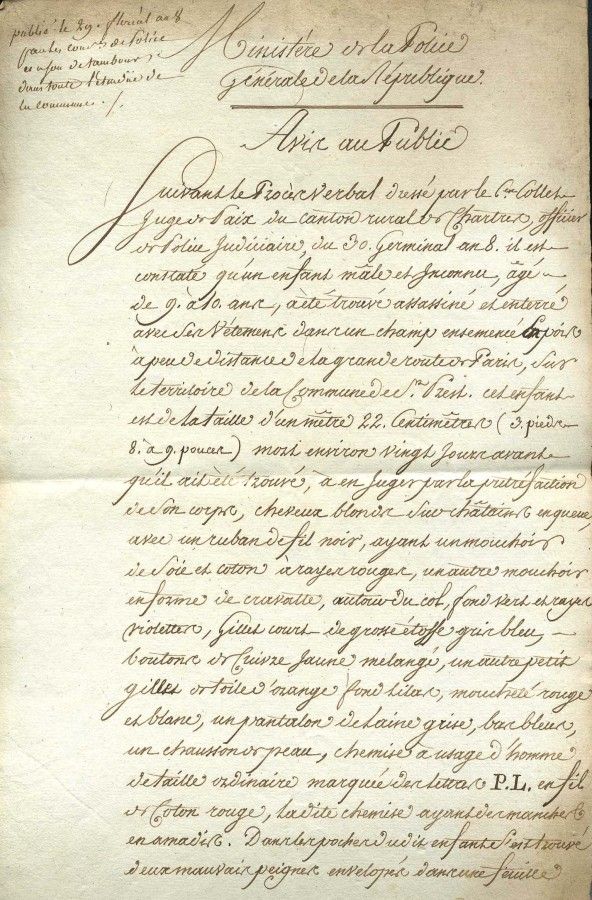 publié le 29. floréal an 8
par les comres de Police
et a son de tambour
dans toute l'étendue de
la commune.
Ministére de la Police
Générale de la République.
Avis au Public
Suivant le Procès verbal dressé par le Cen Collet
Juge de Paix du canton rural de Chartres, officier
de Police Judiciaire, du 30. Germinal an 8. il est
constaté qu'un enfant mâle et Inconnu, âgé
de 9. à 10. ans, a été trouvé assassiné et enterré
avec ses vêtemens dans un champ ensemencé en pois
à peu de distance de la grande route de Paris, sur
le territoire de la Commune de St. Prest. cet enfant
est de la taille d'un mêtre 22. Centimêtres (3. pieds
8. à 9. pouces) mort environ vingt Jours avant
qu'il ait été trouvé, à en Juger par la putréfaction
de son corps, cheveux blonds sur châtains en queue
avec un ruban de fil noir, ayant un mouchoir
de soie et coton à rayes rouges, un autre mouchoir
en forme de cravatte, autour du col, fond vert et rayes
violettes, Gillet court de grosse étoffe gris bleu,
boutons de Cuivre Jaune mélangé, un autre petit
gillet de toile d'orange fond lilas, moucheté rouge
et blanc, un pantalon de laine grise, bas bleus,
un chausson de peau, chemise a usage d'homme
de taille ordinaire marquée des lettres P.L. en fil
de Coton rouge, la dite chemise ayant des manches
en amadis. Dans les poches dudit enfant s'est trouvé
deux mauvais peignes envelopés dans une feuille